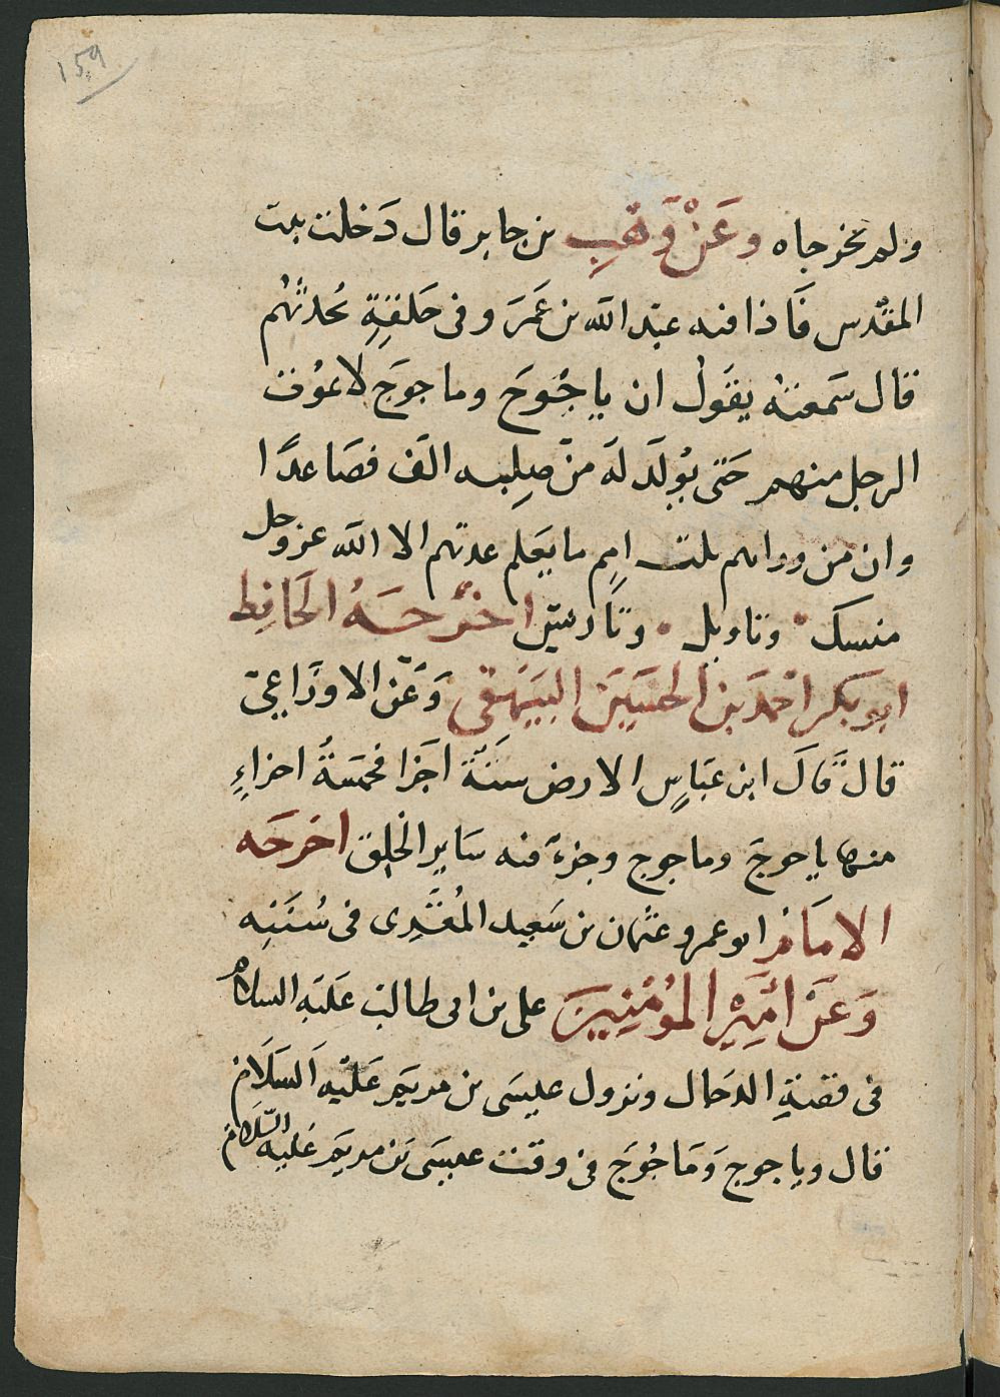 ١٥٩
ولم يخرجاه وعَنْ وَهبِ بن جابر قال دَخلت بيت
المقدس فَاذا فيه عبد الله بن عَمرَ و فى حَلقةٍ يُحدثهُم
قال سَمعته يقَول ان ياجُوجَ وماجوجَ لا يموُت
الرجل منهم حَتى يُولَدَ لَه منْ صلِبه الفَ فصَاعدًا
وان من ورايهم ثلث اممٍ ما يَعلم عدتهم الا الله عز وجل
منسك وتاويل وتاريس اخرجَهُ الحَافِظ
ابو بَكر احمدَ بن الحسَين البَيهَقى وَعَن الاوزَاعِىّ
قال قَالَ ابن عبَاسٍ الارض ستَّة اجزا فخمسَةُ اجزاءٍ
منها ياجوجَ وماجوج وجزءٌ فيه سَاير الخلق اخرجَه
الامَام ابو عمرو عثمان بن سَعيد المُقرِى فى سُنَنِه
وَعَنْ أمِيْرِ المُؤمِنِينَ على بن ابى طالب عَليَه السلام
فى فتنةِ الدجال ونزول عيسَى بن مريَم عَليَه السَلَام
قال وياجوج وَمَاجُوجَ فى وقت عيسَى بَن مريَم عَليه السّلَام